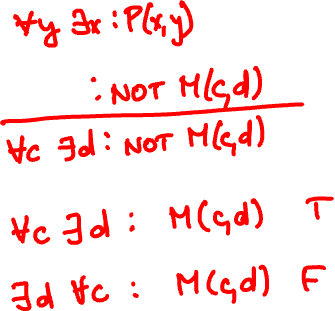 ∀y ∃x : P(x,y)
: NOT M(c,d)
∀c ∃d : NOT M(c,d)
∀c ∃d : M(c,d) T
∃d ∀c : M(c,d) F